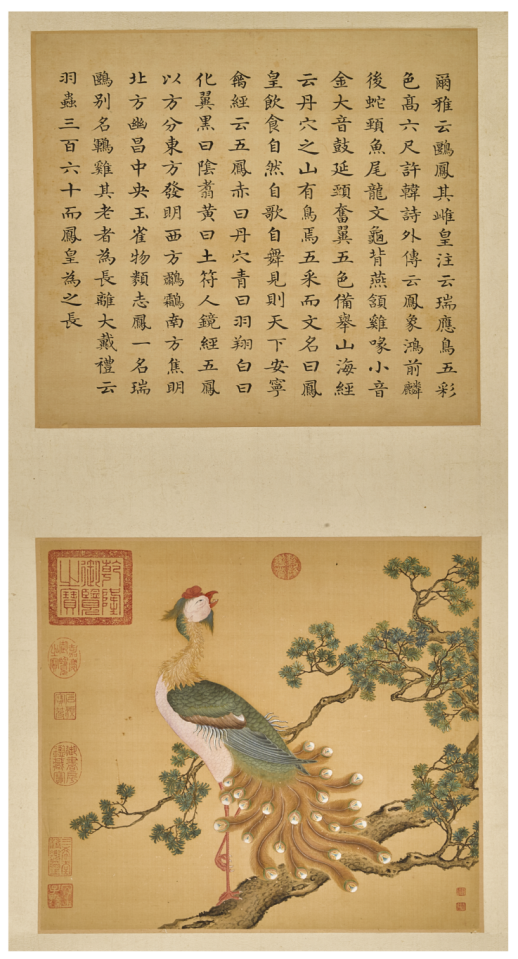 爾雅云鶠鳳其雌皇注云瑞應鳥五彩
色髙六尺許韓詩外傳云鳳象鴻前麟
後蛇頸魚尾龍文龜背燕頷雞喙小音
金大音鼓延頸奮翼五色備舉山海經
云丹穴之山有鳥焉五采而文名曰鳳
皇飲食自然自歌自舞見則天下安寧
禽經云五鳳赤曰丹穴青曰羽翔白曰
化翼黑曰陰翥黃曰土符人鏡經五鳳
以方分東方發明西方鷫鸘南方焦明
北方幽昌中央玉雀物類志鳳一名瑞
鶠别名鶤雞其老者為長離大戴禮云
羽蟲三百六十而鳳皇為之長
乾隆御覽之寶